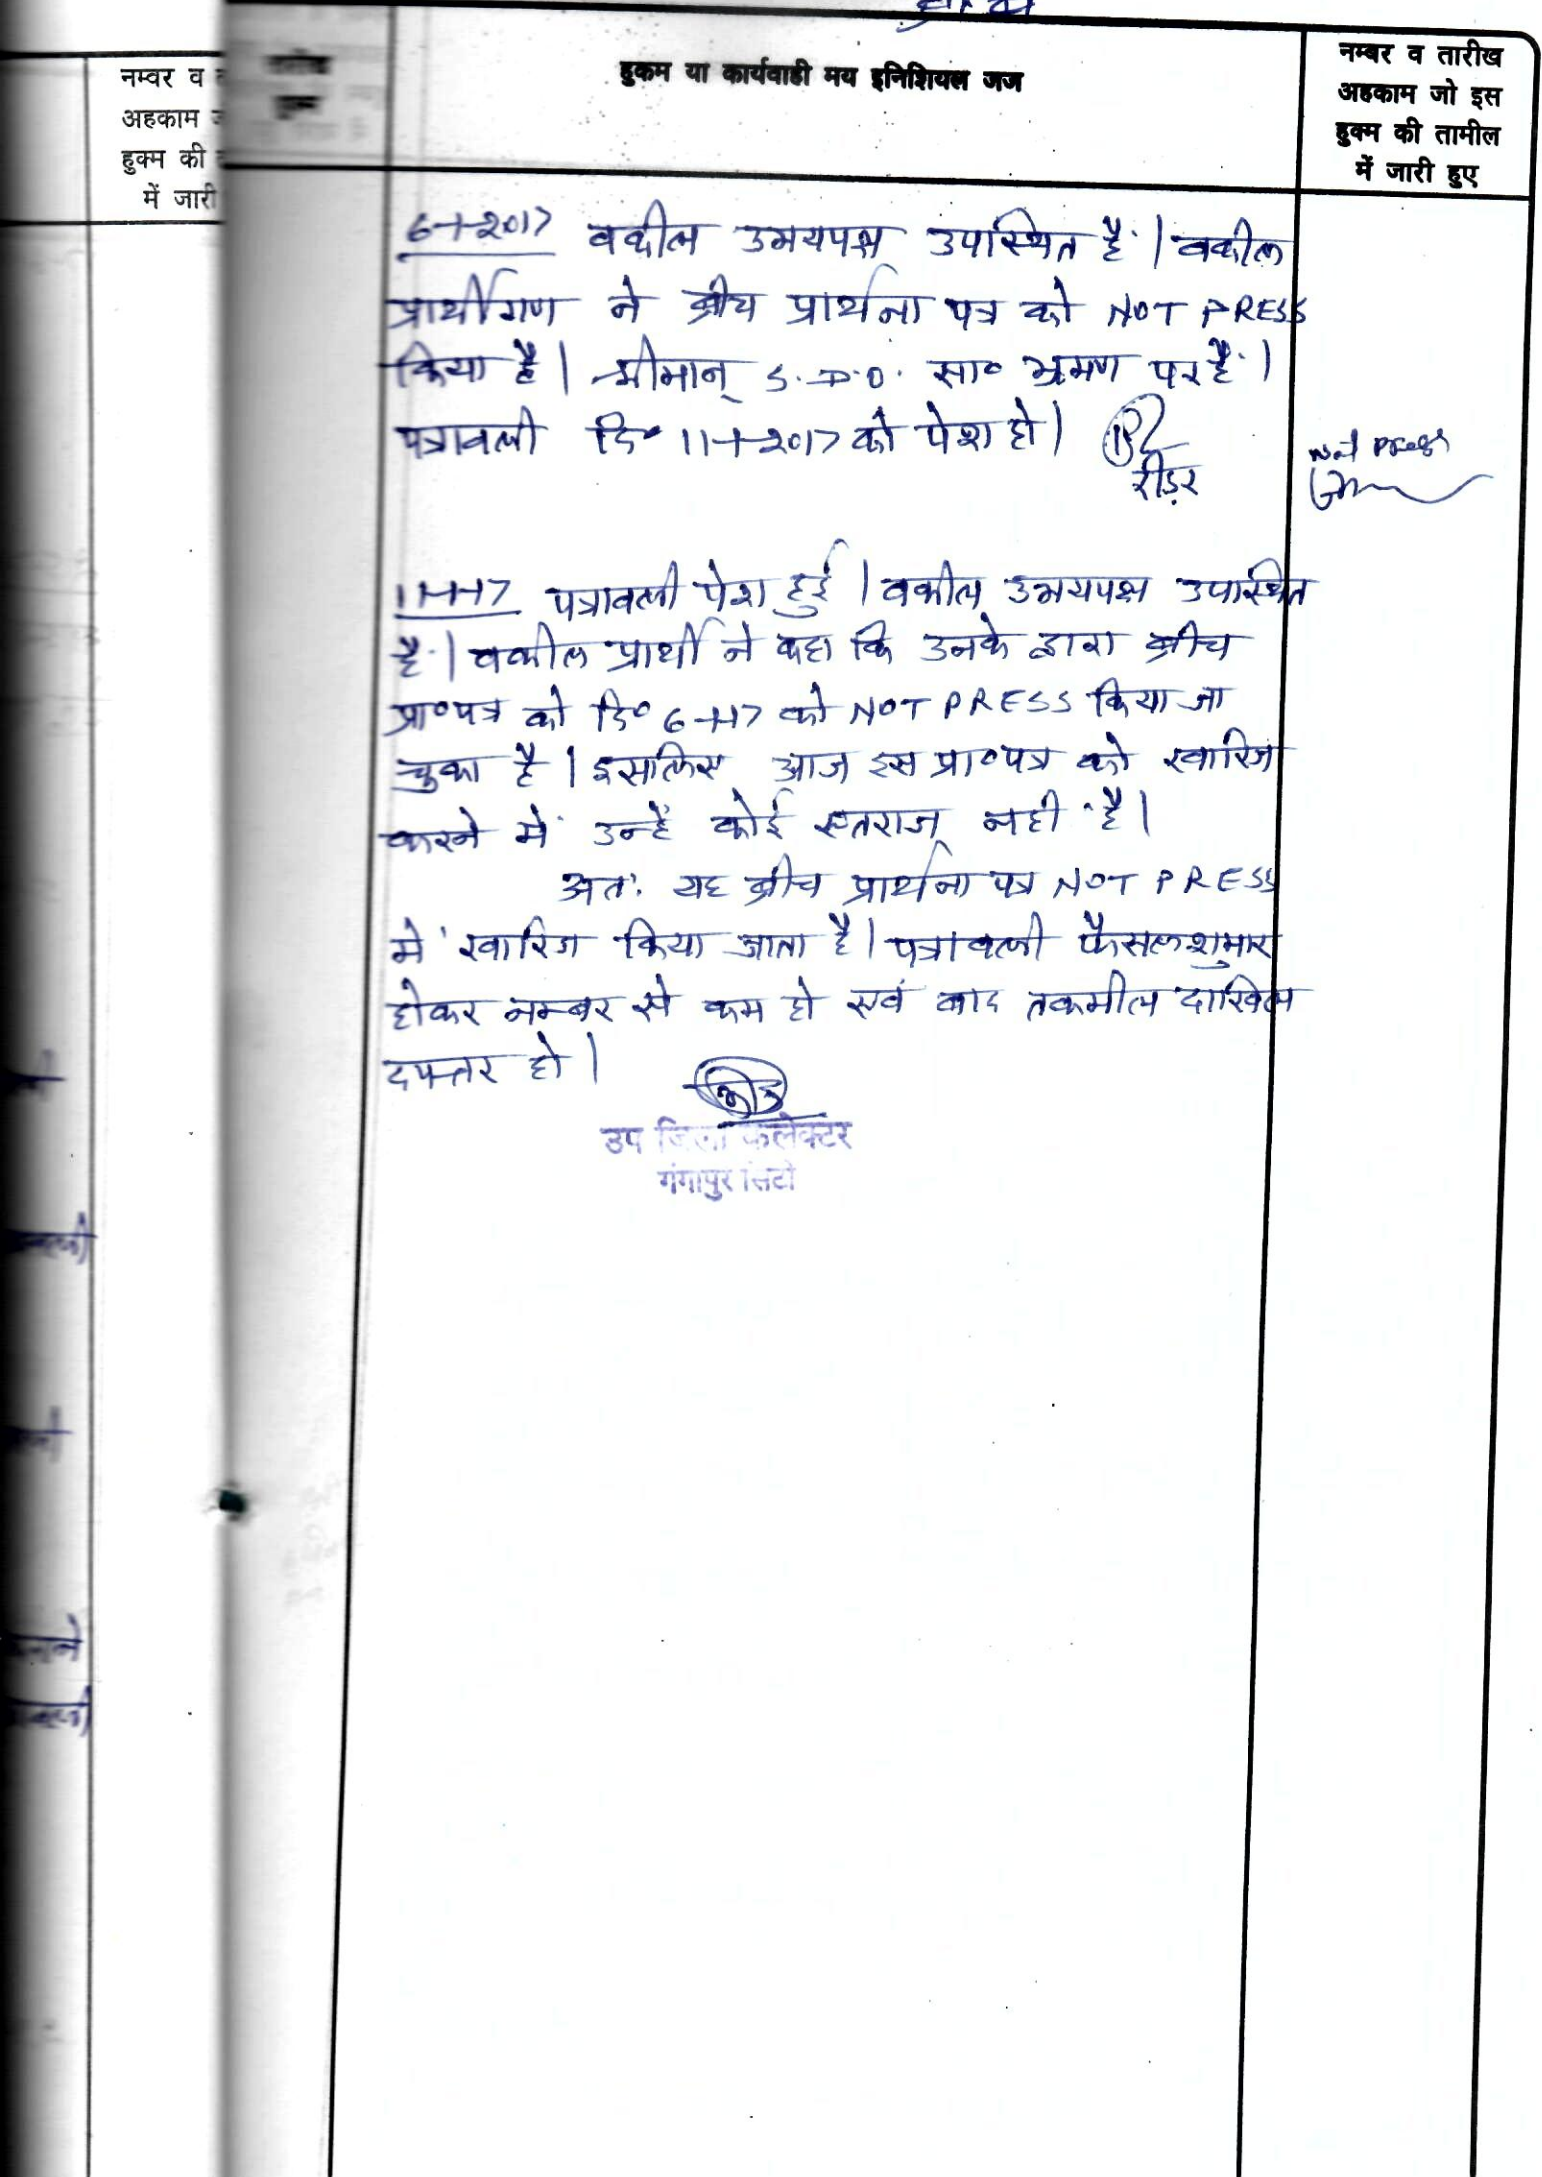 नम्बर व
अहकाम
हुक्म की
में जारी
हुक्म
हुकम या कार्यवाही मय इनिशियल जज
नम्बर व तारीख
अहकाम जो इस
हुक्म की तामील
में जारी हुए
6-1-2017 वकील उभयपक्ष उपस्थित हैं। वकील
प्रार्थीगण ने ब्रीच प्रार्थना पत्र को NOT PRESS
किया है। श्रीमान् S.D.O. सा० भ्रमण पर हैं।
पत्रावली दि० 11-1-2017 को पेश हो।
रीडर
Not Press
11-1-17 पत्रावली पेश हुई। वकील उभयपक्ष उपस्थित
हैं। वकील प्रार्थी ने कहा कि उनके द्वारा ब्रीच
प्रा०पत्र को दि० 6-1-17 को NOT PRESS किया जा
चुका है। इसलिए आज इस प्रा०पत्र को खारिज
करने में उन्हें कोई एतराज नहीं है।
अतः यह ब्रीच प्रार्थना पत्र NOT PRESS
में खारिज किया जाता है। पत्रावली फैसलशुमार
होकर नम्बर से कम हो एवं बाद तकमील दाखिल
दफ्तर हो।
उप जिला कलेक्टर
गंगापुर सिटी